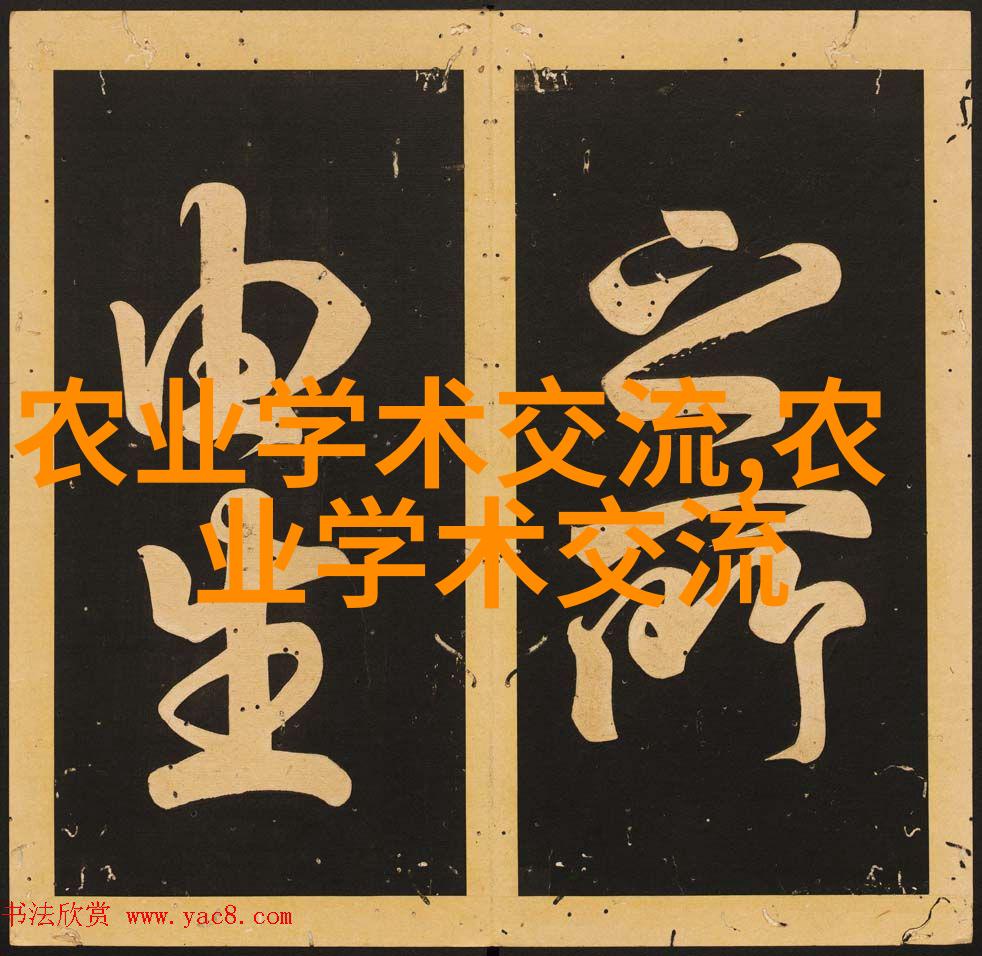 之所
由生
农业学术交流,农
业学术交流
书法欣赏 www.yac8.com